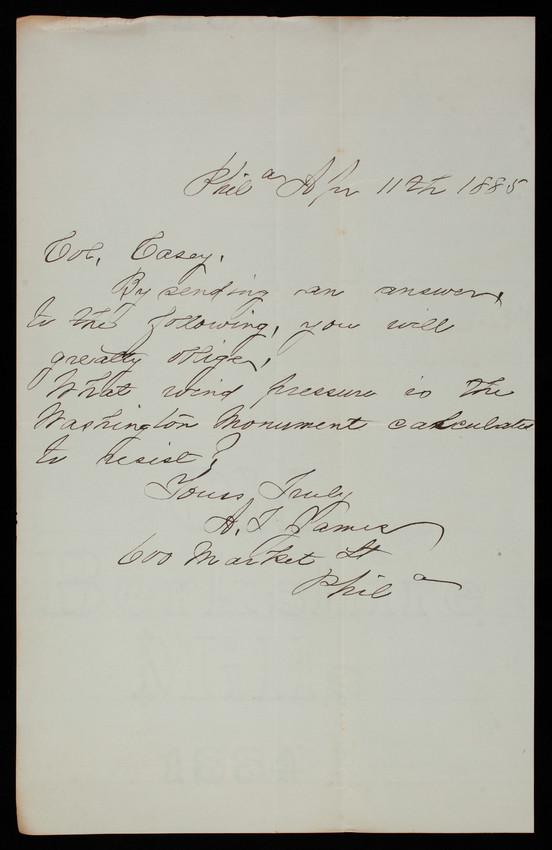 Phila Apr 11th 1885
Col. Casey.
By sending an answer,
to the following, you will
greatly oblige,
What wind pressure is the
Washington Monument calculated
to resist?
Yours Truly
A. T. James
600 Market St
Phila